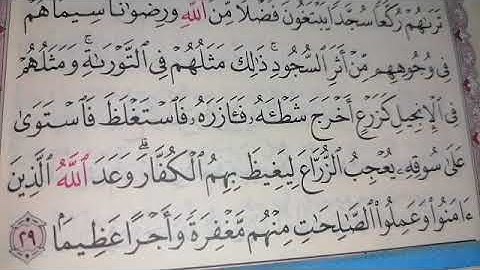 تَرَىٰهُمۡ رُكَّعٗا سُجَّدٗا يَبۡتَغُونَ فَضۡلٗا مِّنَ ٱللَّهِ وَرِضۡوَٰنٗاۖ سِيمَاهُمۡ
فِي وُجُوهِهِم مِّنۡ أَثَرِ ٱلسُّجُودِۚ ذَٰلِكَ مَثَلُهُمۡ فِي ٱلتَّوۡرَىٰةِۚ وَمَثَلُهُمۡ
فِي ٱلۡإِنجِيلِ كَزَرۡعٍ أَخۡرَجَ شَطۡـَٔهُۥ فَـَٔازَرَهُۥ فَٱسۡتَغۡلَظَ فَٱسۡتَوَىٰ
عَلَىٰ سُوقِهِۦ يُعۡجِبُ ٱلزُّرَّاعَ لِيَغِيظَ بِهِمُ ٱلۡكُفَّارَۗ وَعَدَ ٱللَّهُ ٱلَّذِينَ
ءَامَنُواْ وَعَمِلُواْ ٱلصَّٰلِحَٰتِ مِنۡهُم مَّغۡفِرَةٗ وَأَجۡرًا عَظِيمَۢا ٢٩